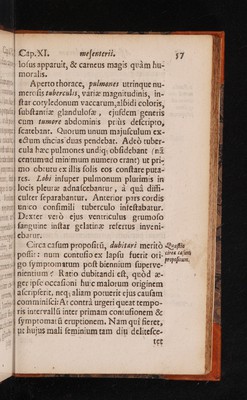 Cap.XI. mesenterii. 57
losus apparuit, & carneus magis quàm hu-
moralis.
Aperto thorace, pulmones utrinque nu-
merosis tuberculis, variæ magnitudinis, in-
star cotyledonum vaccarum, albidi coloris,
substantiæ glandulosæ, ejusdem generis
cum tumore abdominis priùs descripto,
scatebant. Quorum unum majusculum ex-
ectum uncias duas pendebat. Adeò tuber-
cula hæc pulmones undiq; obsidebant (nā
centum ad minimum numero erant) ut pri-
mo obtutu ex illis solis eos constare puta-
res. Lobi insuper pulmonum plurimis in
locis pleuræ adnascebantur, à quâ diffi-
culter separabantur. Anterior pars cordis
unico consimili tuberculo infestabatur.
Dexter verò ejus ventriculus grumoso
sanguine instar gelatinæ refertus inveni-
ebatur.
Circa casum propositū, dubitari meritò
possit: num contusio ex lapsu fuerit ori-
go symptomatum post biennium superve-
nientium? Ratio dubitandi est, quòd æ-
ger ipse occasioni huic malorum originem
ascripserit, neq; aliam potuerit ejus causam
comminisci: At contrà urgeri queat tempo-
ris intervallū inter primam contusionem &
symptomatū eruptionem. Nam quî fieret,
ut hujus mali seminium tam diu delitesce-
ret
Quæstio
circa casum
propositum.